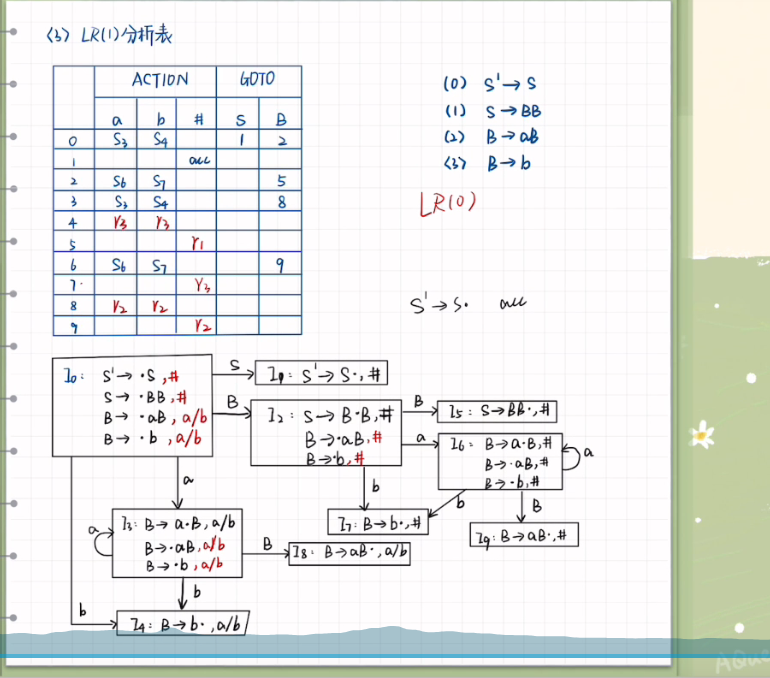 (3) LR(1)分析表
ACTION GOTO
a b # S B
0 S3 S4 1 2
1 acc
2 S6 S7 5
3 S3 S4 8
4 r3 r3
5 r1
6 S6 S7 9
7 r3
8 r2 r2
9 r2
(0) S'→S
(1) S→BB
(2) B→aB
(3) B→b
LR(0)
S'→S· acc
I0: S'→·S,#
S→·BB,#
B→·aB,a/b
B→·b,a/b
S
I1: S'→S·,#
B
I2: S→B·B,#
B→·aB,#
B→·b,#
B
I5: S→BB·,#
a
I6: B→a·B,#
B→·aB,#
B→·b,#
a
a
b
b
B
I7: B→b·,#
I9: B→aB·,#
a
I3: B→a·B,a/b
B→·aB,a/b
B→·b,a/b
B
I8: B→aB·,a/b
b
b
I4: B→b·,a/b